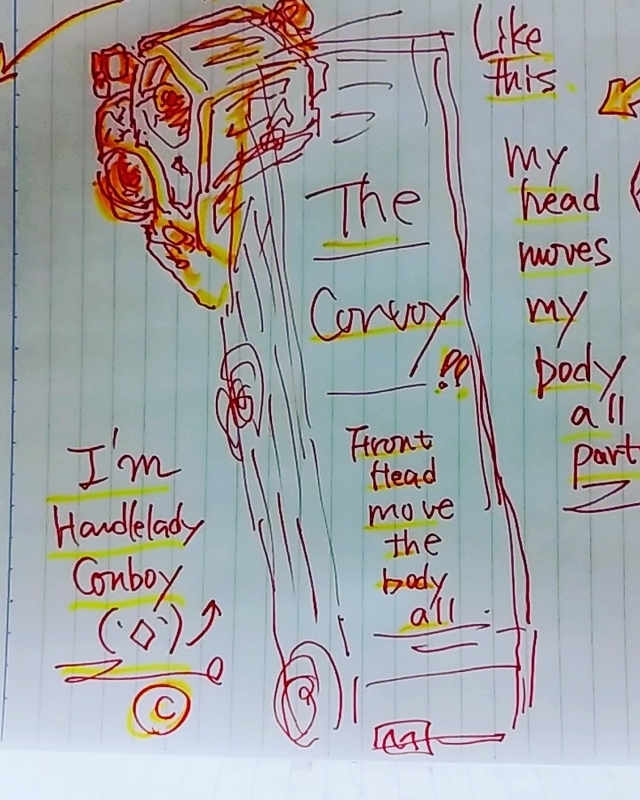 Like
this.
my
head
moves
my
body
all
part
The
Convoy
!?
Front
Head
move
the
body
all
I'm
Handlelady
Conboy
(`◇´)
C